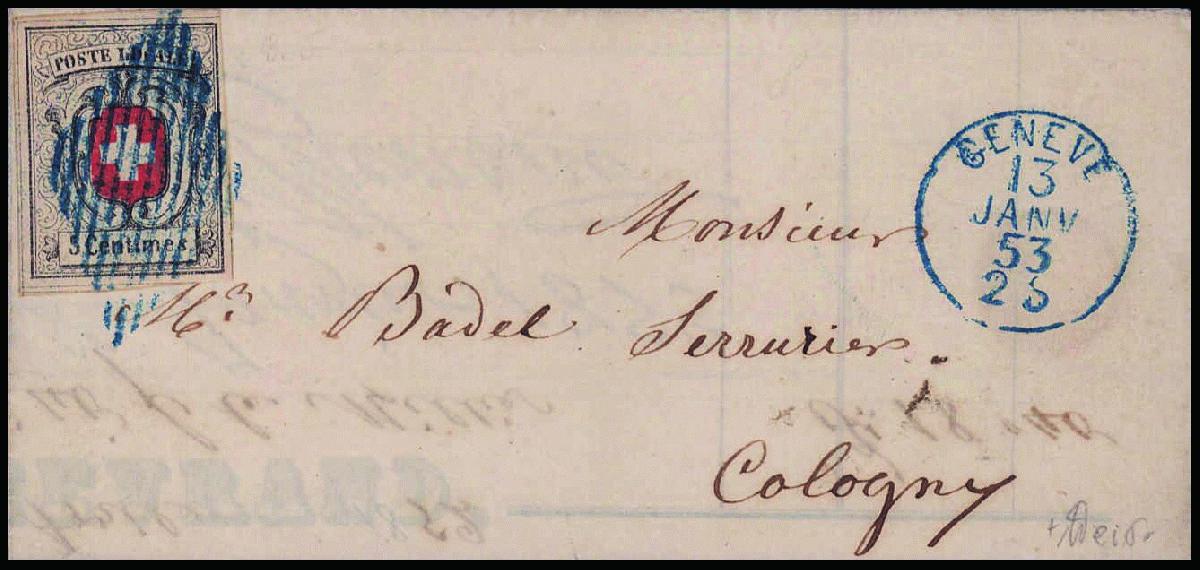 POSTE LOCALE
5 Centimes
GENEVE
13
JANV
53
Monsieur
Mr Badel Serrurier
Cologny